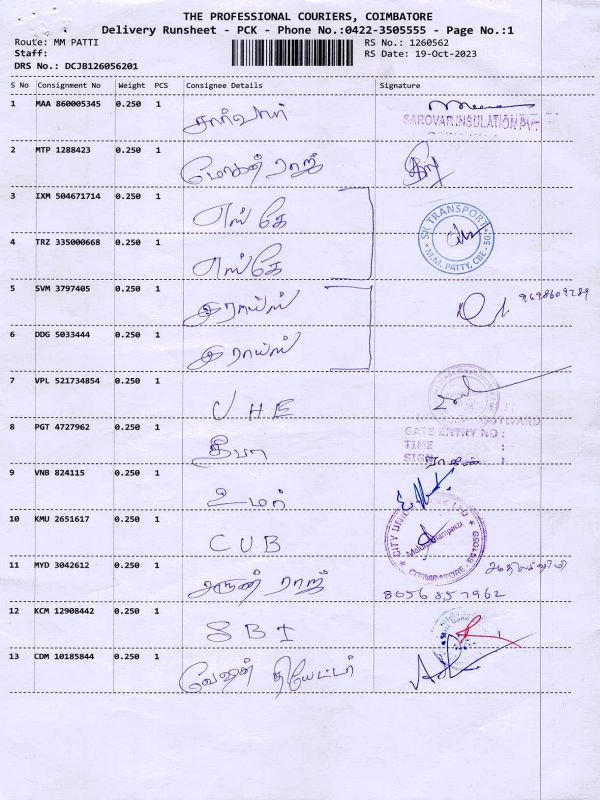 THE PROFESSIONAL COURIERS, COIMBATORE
Delivery Runsheet - PCK - Phone No.:0422-3505555 - Page No.:1
Route: MM PATTI RS No.: 1260562
Staff: RS Date: 19-Oct-2023
DRS No.: DCJB126056201
S No Consignment No Weight PCS Consignee Details Signature
1 MAA 860005345 0.250 1
SAROVAR INSULATION PVT
2 MTP 1288423 0.250 1 மோகன் ராஜ்
3 IXM 504671714 0.250 1 எஸ் கே
SK TRANSPORT
M.M. PATTY, CBE - 50
4 TRZ 335000668 0.250 1 எஸ் கே
5 SVM 3797405 0.250 1
6 DDG 5033444 0.250 1
7 VPL 521734854 0.250 1 UHE
8 PGT 4727962 0.250 1 தீபா
GATE ENTRY NO :
TIME :
SIGN
9 VNB 824115 0.250 1 உமர்
10 KMU 2651617 0.250 1 CUB
11 MYD 3042612 0.250 1 அருண் ராஜ்
8056857962
12 KCM 12908442 0.250 1 SBI
13 CDM 10185844 0.250 1